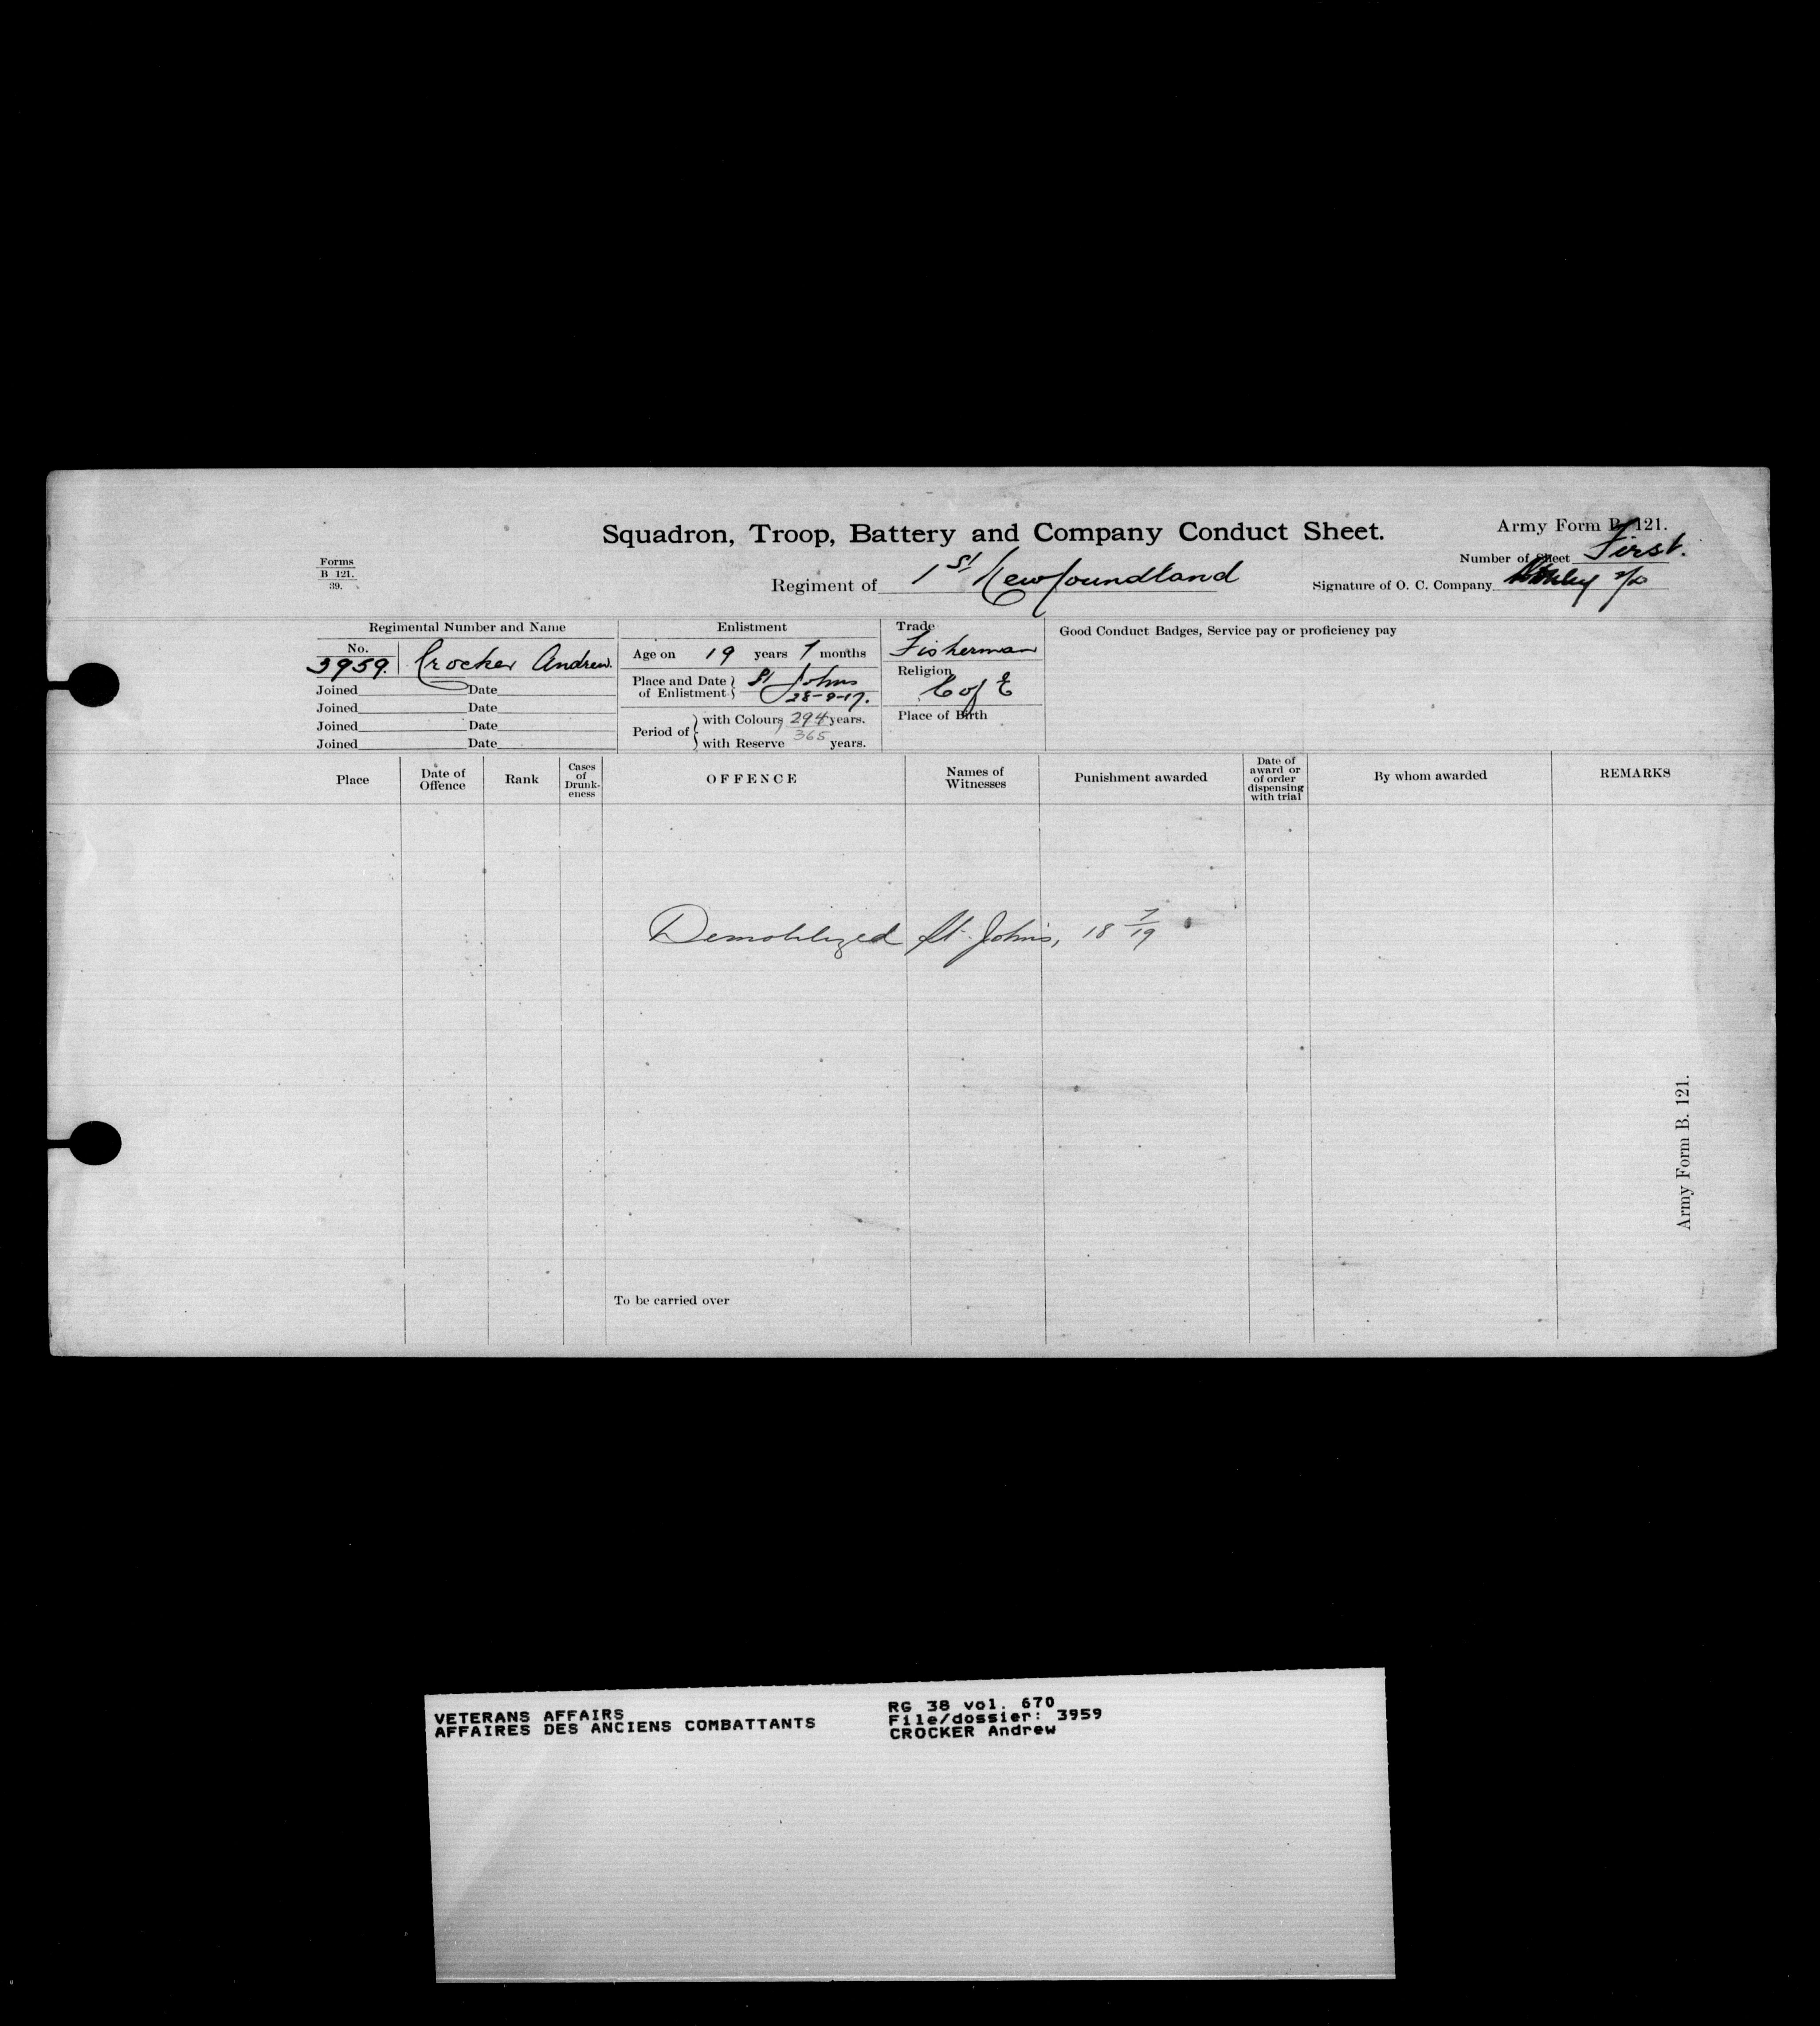 Squadron, Troop, Battery and Company Conduct Sheet.
Army Form B. 121.
Forms
B 121.
39.
Number of Sheet First.
Regiment of 1st Newfoundland
Signature of O. C. Company
Regimental Number and Name
No.
3959. Crocker Andrew.
Joined Date
Joined Date
Joined Date
Joined Date
Enlistment
Age on 19 years 7 months
Place and Date of Enlistment St Johns
28-9-17.
Period of with Colours 294 years.
with Reserve 365 years.
Trade
Fisherman
Religion
C of E
Place of Birth
Good Conduct Badges, Service pay or proficiency pay
Place
Date of Offence
Rank
Cases of Drunk-eness
OFFENCE
Names of Witnesses
Punishment awarded
Date of award or of order dispensing with trial
By whom awarded
REMARKS
Demobilized St. John's, 18 7/19
To be carried over
Army Form B. 121.
VETERANS AFFAIRS
AFFAIRES DES ANCIENS COMBATTANTS
RG 38 vol. 670
File/dossier: 3959
CROCKER Andrew